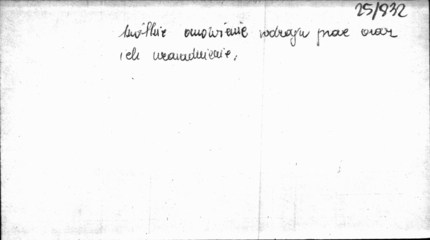 25/932
krótkie omówienie rodzaju prac oraz
ich uzasadnienie.